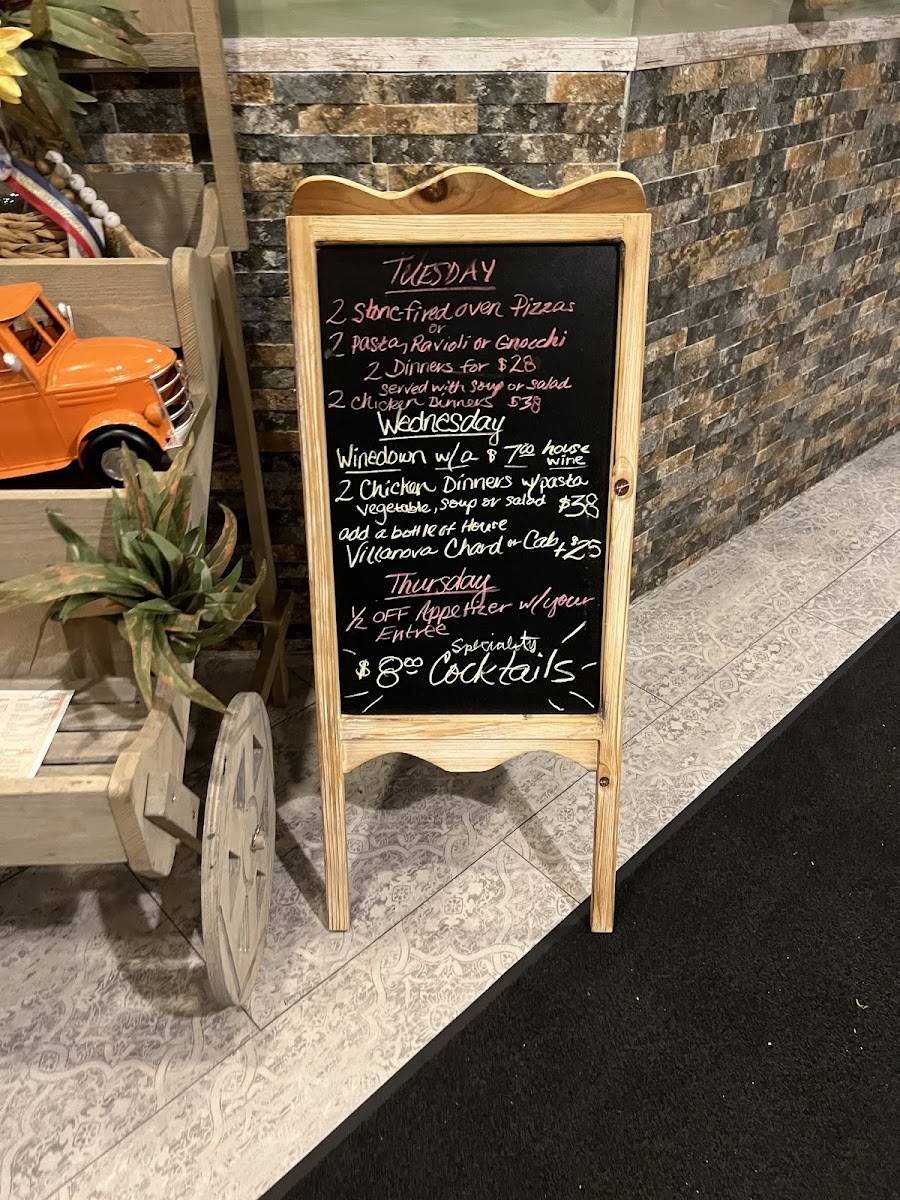 TUESDAY
2 Stone-fired oven Pizzas
or
2 Pasta, Ravioli or Gnocchi
2 Dinners for $28
Served with Soup or Salad
2 Chicken Dinners $38
Wednesday
Winedown w/a $7.00 house wine
2 Chicken Dinners w/pasta
vegetable, soup or salad $38
add a bottle of House
Villanova Chard or Cab +$25
Thursday
1/2 OFF Appetizer w/your
Entrée
Speciality
$8.00 Cocktails